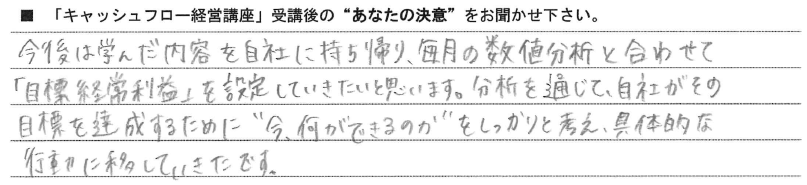 ■ 「キャッシュフロー経営講座」受講後の“あなたの決意”をお聞かせ下さい。
今後は学んだ内容を自社に持ち帰り、毎月の数値分析と合わせて
「目標経常利益」を設定していきたいと思います。分析を通じて、自社がその
目標を達成するために“今、何ができるのか”をしっかりと考え、具体的な
行動に移していきたです。